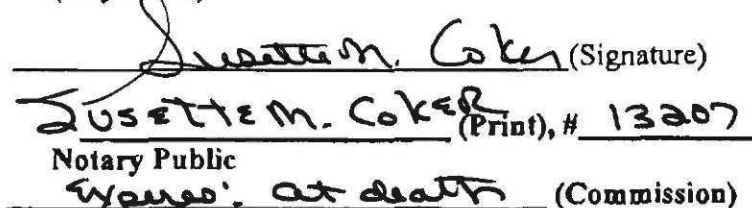 Susette M. Coker (Signature)
SUSETTE M. COKER (Print), # 13207
Notary Public
Expires: at death (Commission)